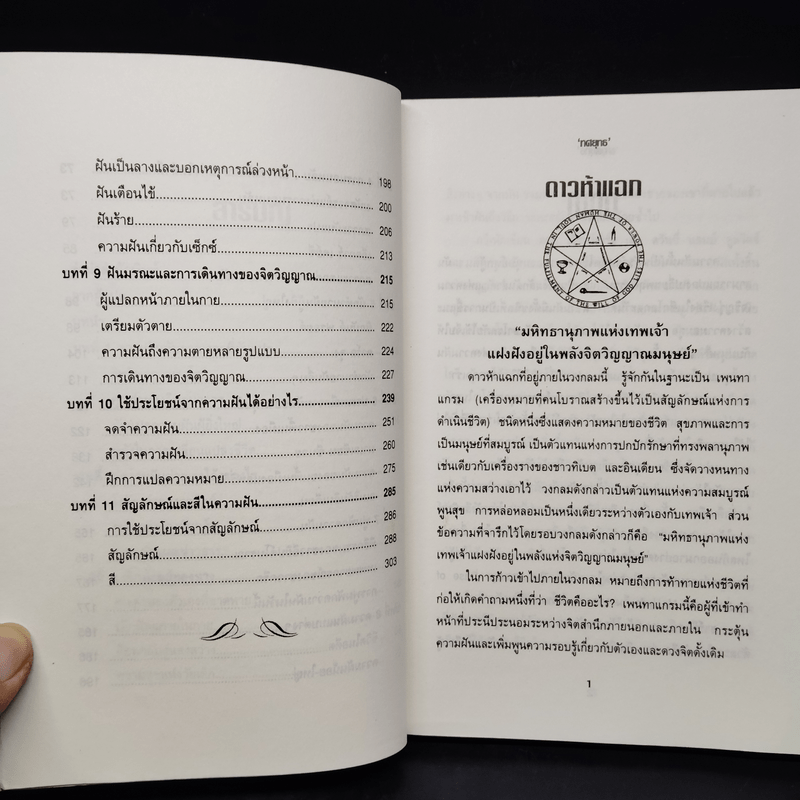 ฝันเป็นลางและบอกเหตุการณ์ล่วงหน้า 198
ฝันเตือนไข้ 200
ฝันร้าย 206
ความฝันเกี่ยวกับเซ็กซ์ 213
บทที่ 9 ฝันมรณะและการเดินทางของจิตวิญญาณ 215
ผู้แปลกหน้าภายในกาย 215
เตรียมตัวตาย 222
ความฝันถึงความตายหลายรูปแบบ 224
การเดินทางของจิตวิญญาณ 227
บทที่ 10 ใช้ประโยชน์จากความฝันได้อย่างไร 239
จดจำความฝัน 251
สำรวจความฝัน 260
ฝึกการแปลความหมาย 275
บทที่ 11 สัญลักษณ์และสีในความฝัน 285
การใช้ประโยชน์จากสัญลักษณ์ 286
สัญลักษณ์ 288
สี 303
'ทศยุทธ'
ดาวห้าแฉก
“มหิทธานุภาพแห่งเทพเจ้า
แฝงฝังอยู่ในพลังจิตวิญญาณมนุษย์”
ดาวห้าแฉกที่อยู่ภายในวงกลมนี้ รู้จักกันในฐานะเป็น เพนทา
แกรม (เครื่องหมายที่คนโบราณสร้างขึ้นไว้เป็นสัญลักษณ์แห่งการ
ดำเนินชีวิต) ชนิดหนึ่งซึ่งแสดงความหมายของชีวิต สุขภาพและการ
เป็นมนุษย์ที่สมบูรณ์ เป็นตัวแทนแห่งการปกปักรักษาที่ทรงพลานุภาพ
เช่นเดียวกับเครื่องรางของชาวทิเบต และอินเดียน ซึ่งจัดวางหนทาง
แห่งความสว่างเอาไว้ วงกลมดังกล่าวเป็นตัวแทนแห่งความสมบูรณ์
พูนสุข การหล่อหลอมเป็นหนึ่งเดียวระหว่างตัวเองกับเทพเจ้า ส่วน
ข้อความที่จารึกไว้โดยรอบวงกลมดังกล่าวก็คือ “มหิทธานุภาพแห่ง
เทพเจ้าแฝงฝังอยู่ในพลังแห่งจิตวิญญาณมนุษย์”
ในการก้าวเข้าไปภายในวงกลม หมายถึงการท้าทายแห่งชีวิตที่
ก่อให้เกิดคำถามหนึ่งที่ว่า ชีวิตคืออะไร? เพนทาแกรมนี้คือผู้ที่เข้าทำ
หน้าที่ประนีประนอมระหว่างจิตสำนึกภายนอกและภายใน กระตุ้น
ความฝันและเพิ่มพูนความรอบรู้เกี่ยวกับตัวเองและดวงจิตดั้งเดิม
1